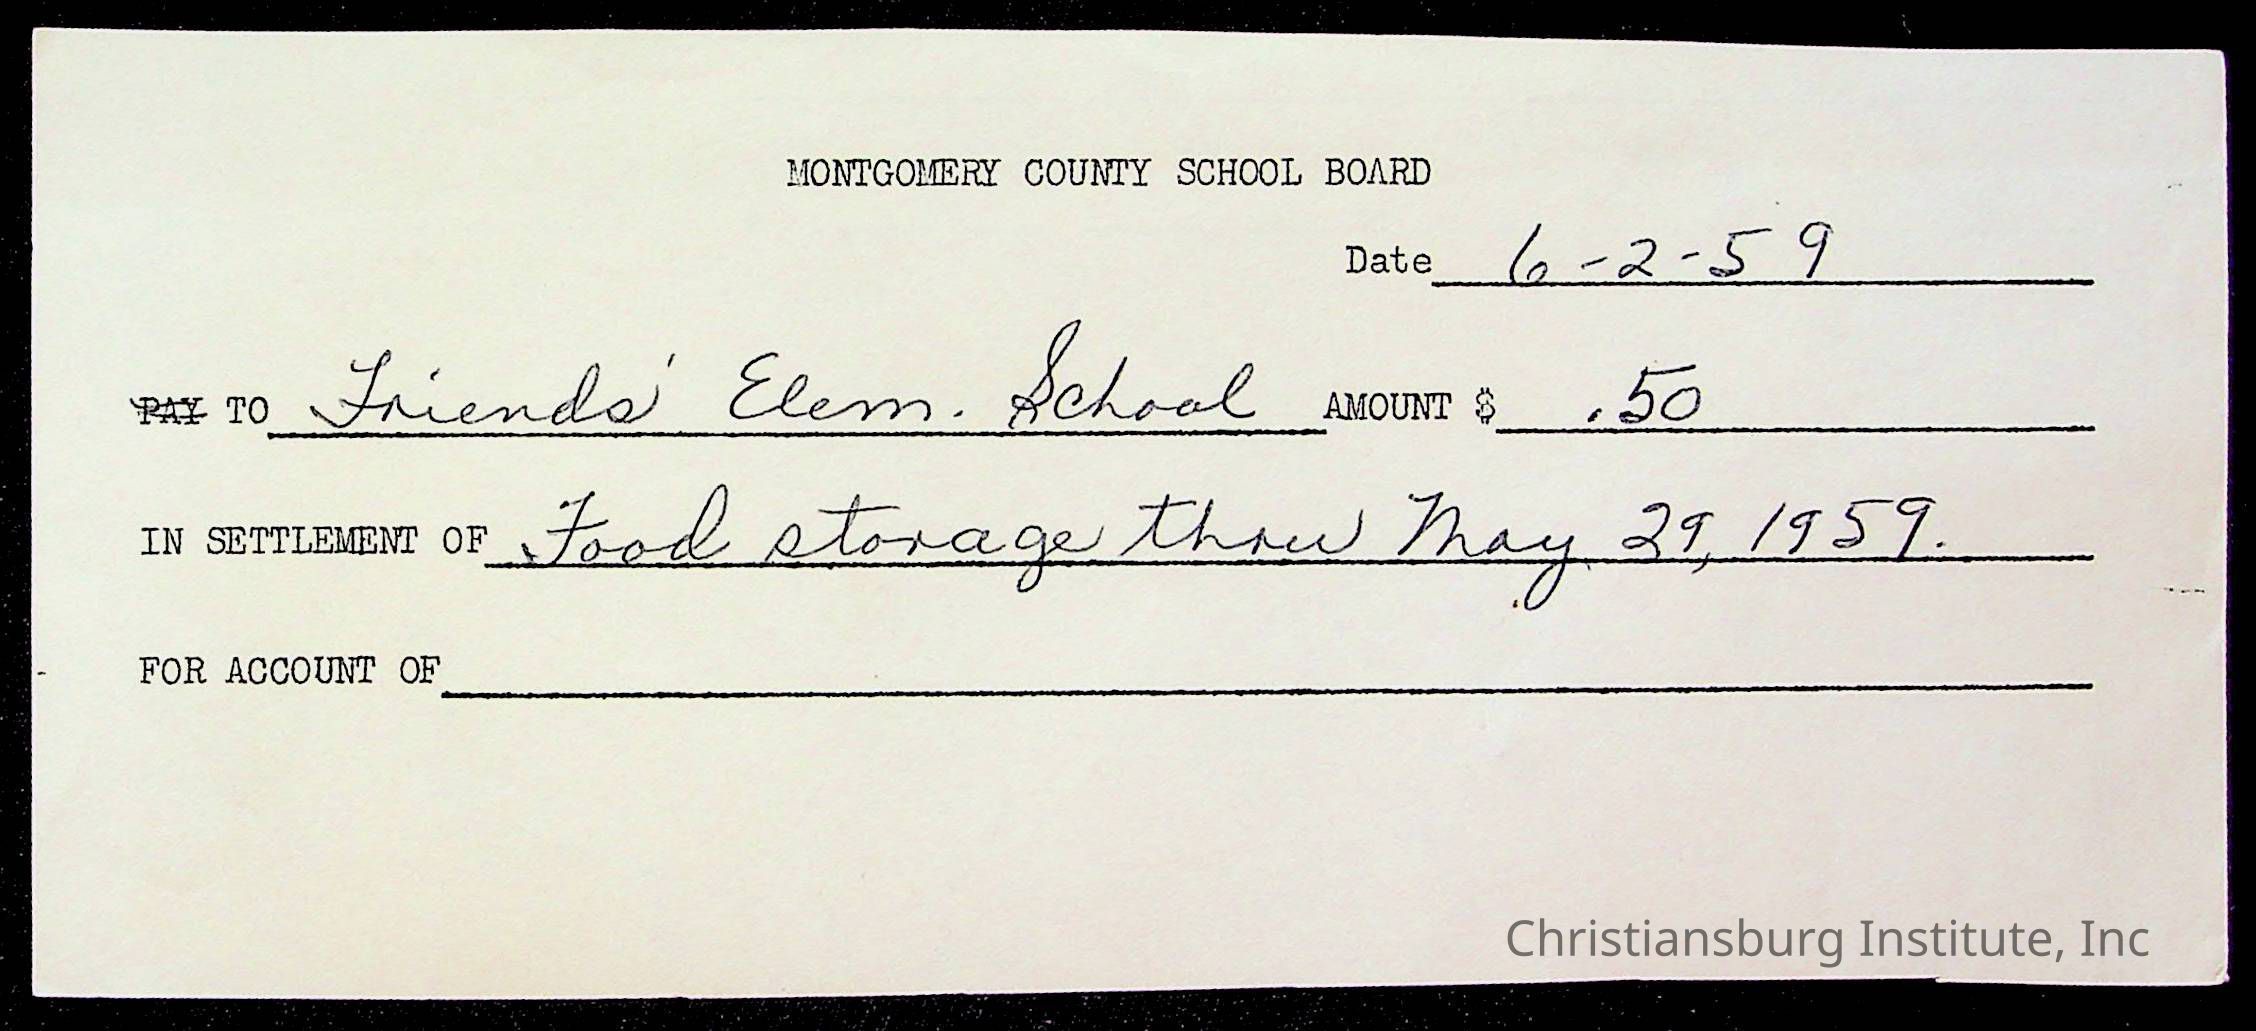 MONTGOMERY COUNTY SCHOOL BOARD
Date 6-2-59
PAY TO Friends' Elem. School AMOUNT $ .50
IN SETTLEMENT OF Food storage thru May 29, 1959.
FOR ACCOUNT OF
Christiansburg Institute, Inc